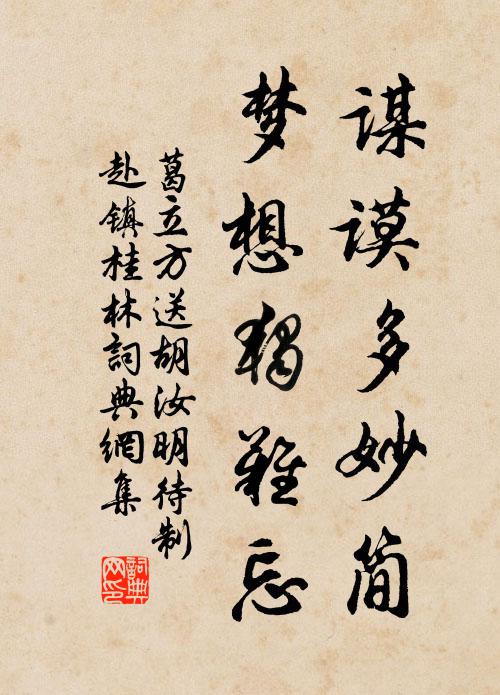 谋谟多妙简
梦想独难忘
葛立方送胡汝明待制
赴镇桂林詞典網集
詞典网印